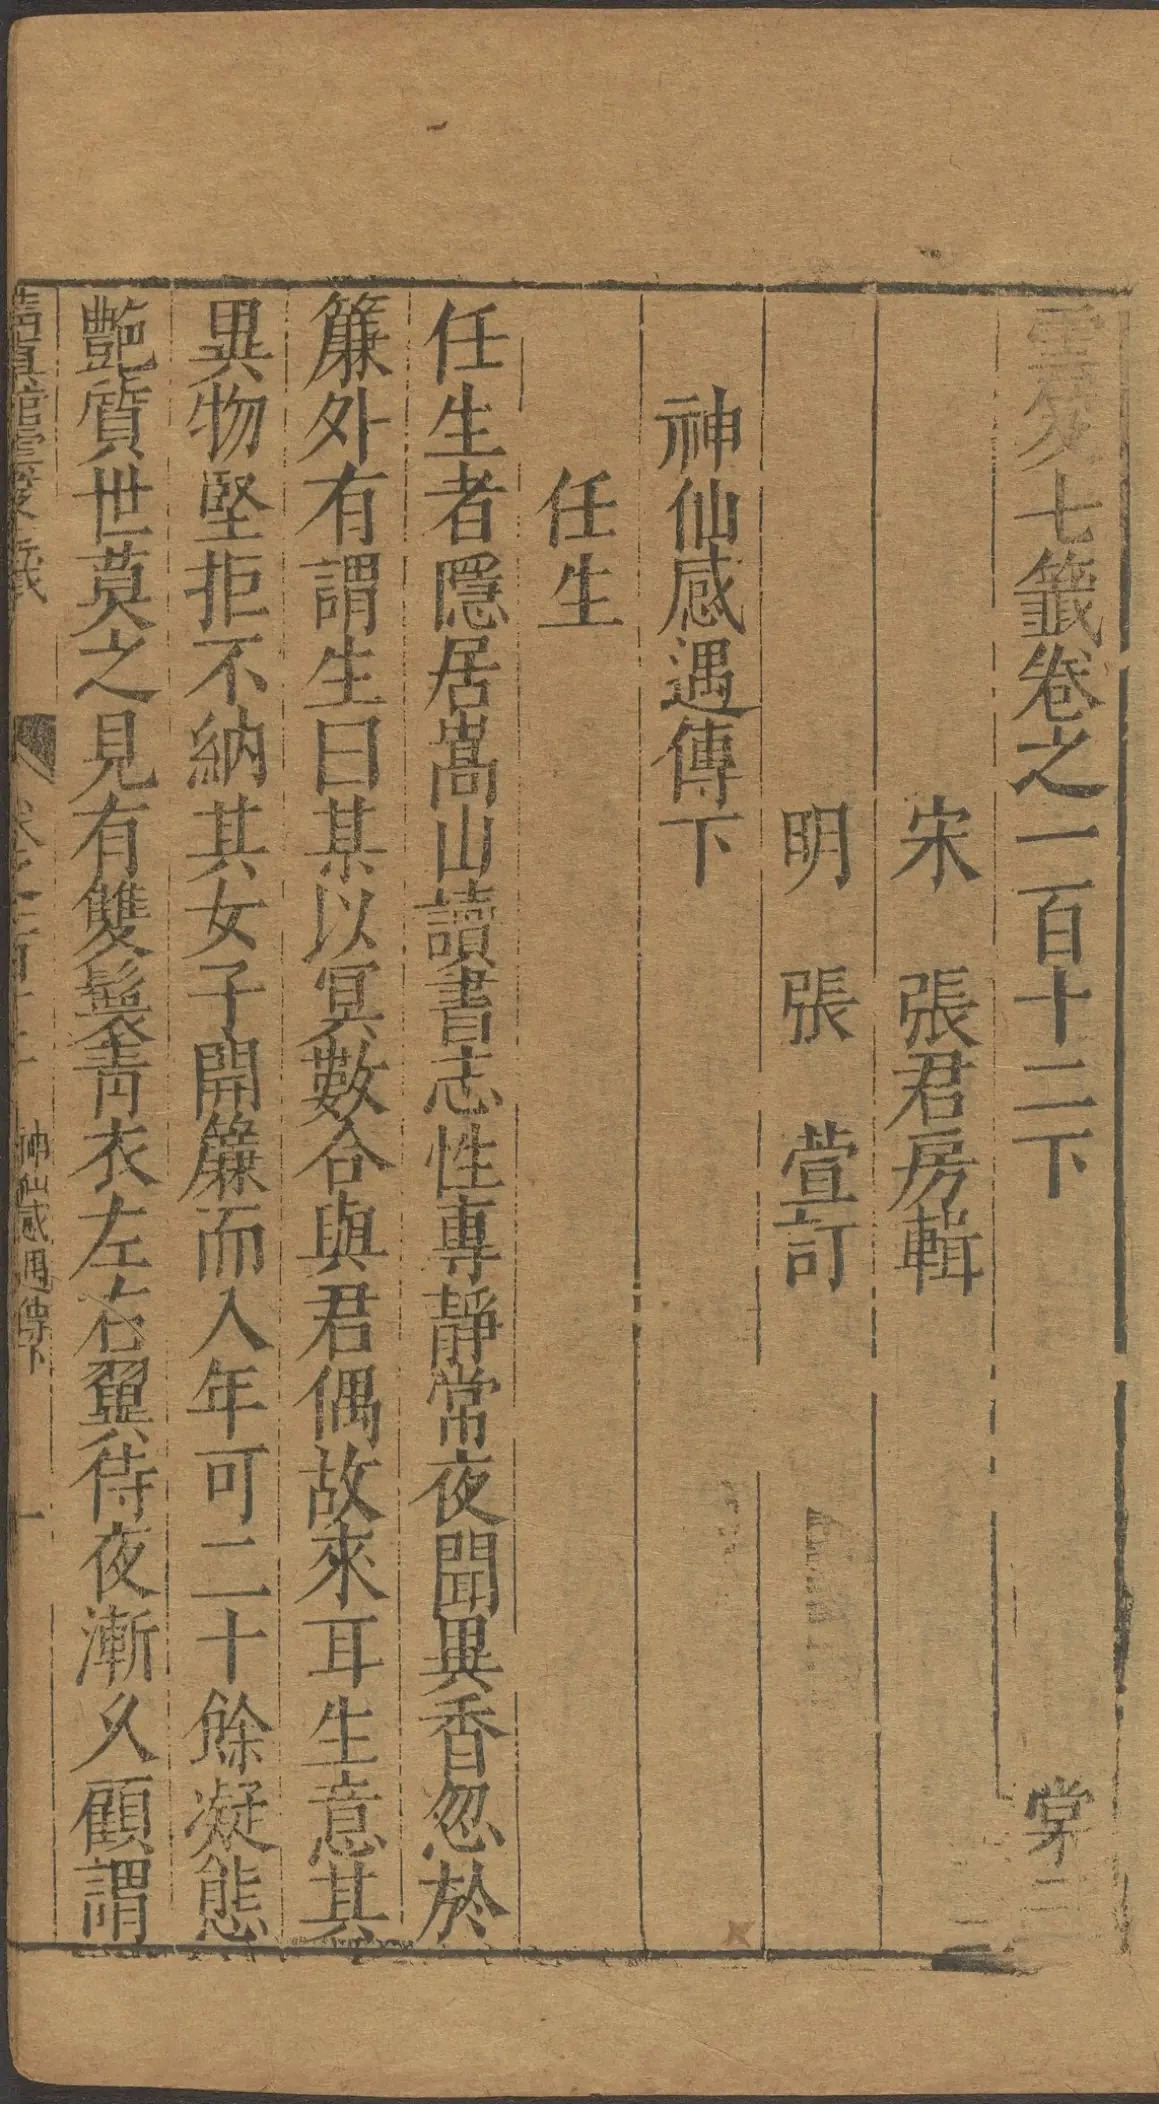 雲笈七籤卷之一百十二下 棠二
宋 張君房輯
明 張 萱訂
神仙感遇傳下
任生
任生者隱居嵩山讀書志性專靜常夜聞異香忽於
簾外有謂生曰某以冥數合與君偶故來耳生意其
異物堅拒不納其女子開簾而入年可二十餘凝態
艷質世莫之見有雙鬟青衣左右翼待夜漸久顧謂
清真館雲笈七籤 卷之一百十二 神仙感遇傳下 一